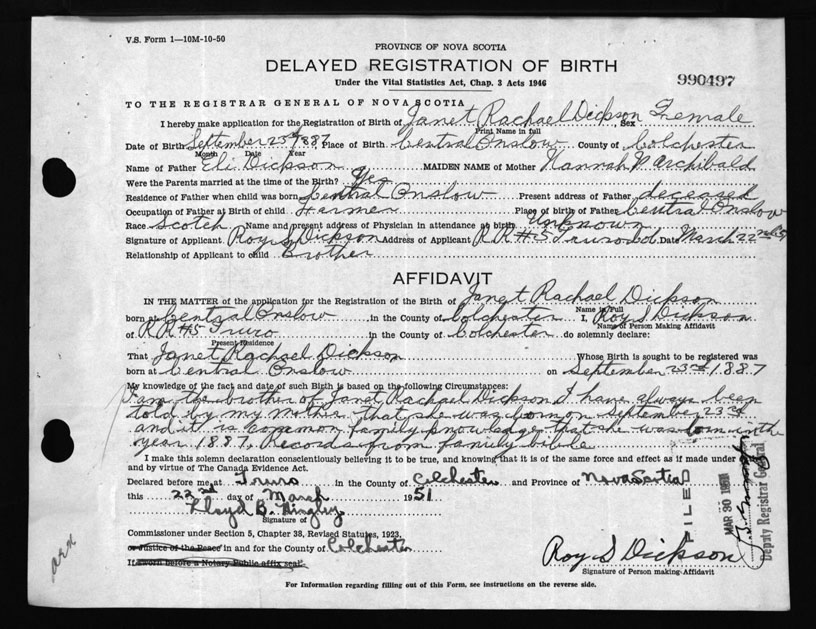 V.S. Form 1—10M-10-50
PROVINCE OF NOVA SCOTIA
DELAYED REGISTRATION OF BIRTH
990497
Under the Vital Statistics Act, Chap. 3 Acts 1946
TO THE REGISTRAR GENERAL OF NOVA SCOTIA
I hereby make application for the Registration of Birth of Janet Rachael Dickson Sex Female
Print Name in full
Date of Birth September 23rd 1887 Place of Birth Central Onslow County of Colchester
Month Date Year
Name of Father Eli Dickson MAIDEN NAME of Mother Hannah Archibald
Were the Parents married at the time of the Birth? Yes
Residence of Father when child was born Central Onslow Present address of Father deceased
Occupation of Father at Birth of child Fermer Place of birth of Father Central Onslow
Race Scotch Name and present address of Physician in attendance at birth Unknown
Signature of Applicant Roy S Dickson Address of Applicant R R #5 Truro Date March 22nd
Relationship of Applicant to child Brother
AFFIDAVIT
IN THE MATTER of the application for the Registration of the Birth of Janet Rachael Dickson
Name in Full
born at Central Onslow in the County of Colchester I, Roy S Dickson
Name of Person Making Affidavit
of R R #5 Truro in the County of Colchester do solemnly declare:
Present Residence
That Janet Rachael Dickson Whose Birth is sought to be registered was
born at Central Onslow on September 23rd 1887
My knowledge of the fact and date of such Birth is based on the following Circumstances:
I am the brother of Janet Rachael Dickson I have always been
told by my mother that she was born on September 23rd
and it is common family knowledge that she was born in the
year 1887, Records from family bible
I make this solemn declaration conscientiously believing it to be true, and knowing that it is of the same force and effect as if made under
and by virtue of The Canada Evidence Act.
Declared before me at Truro in the County of Colchester and Province of Nova Scotia
this 22nd day of March 1951
Floyd B.
Signature of
Commissioner under Section 5, Chapter 38, Revised Statutes, 1923,
or Justice of the Peace in and for the County of Colchester
If sworn before a Notary Public affix seal
Roy S Dickson
Signature of Person making Affidavit
For Information regarding filling out of this Form, see instructions on the reverse side.
FILED
MAR 30 1951
Deputy Registrar General